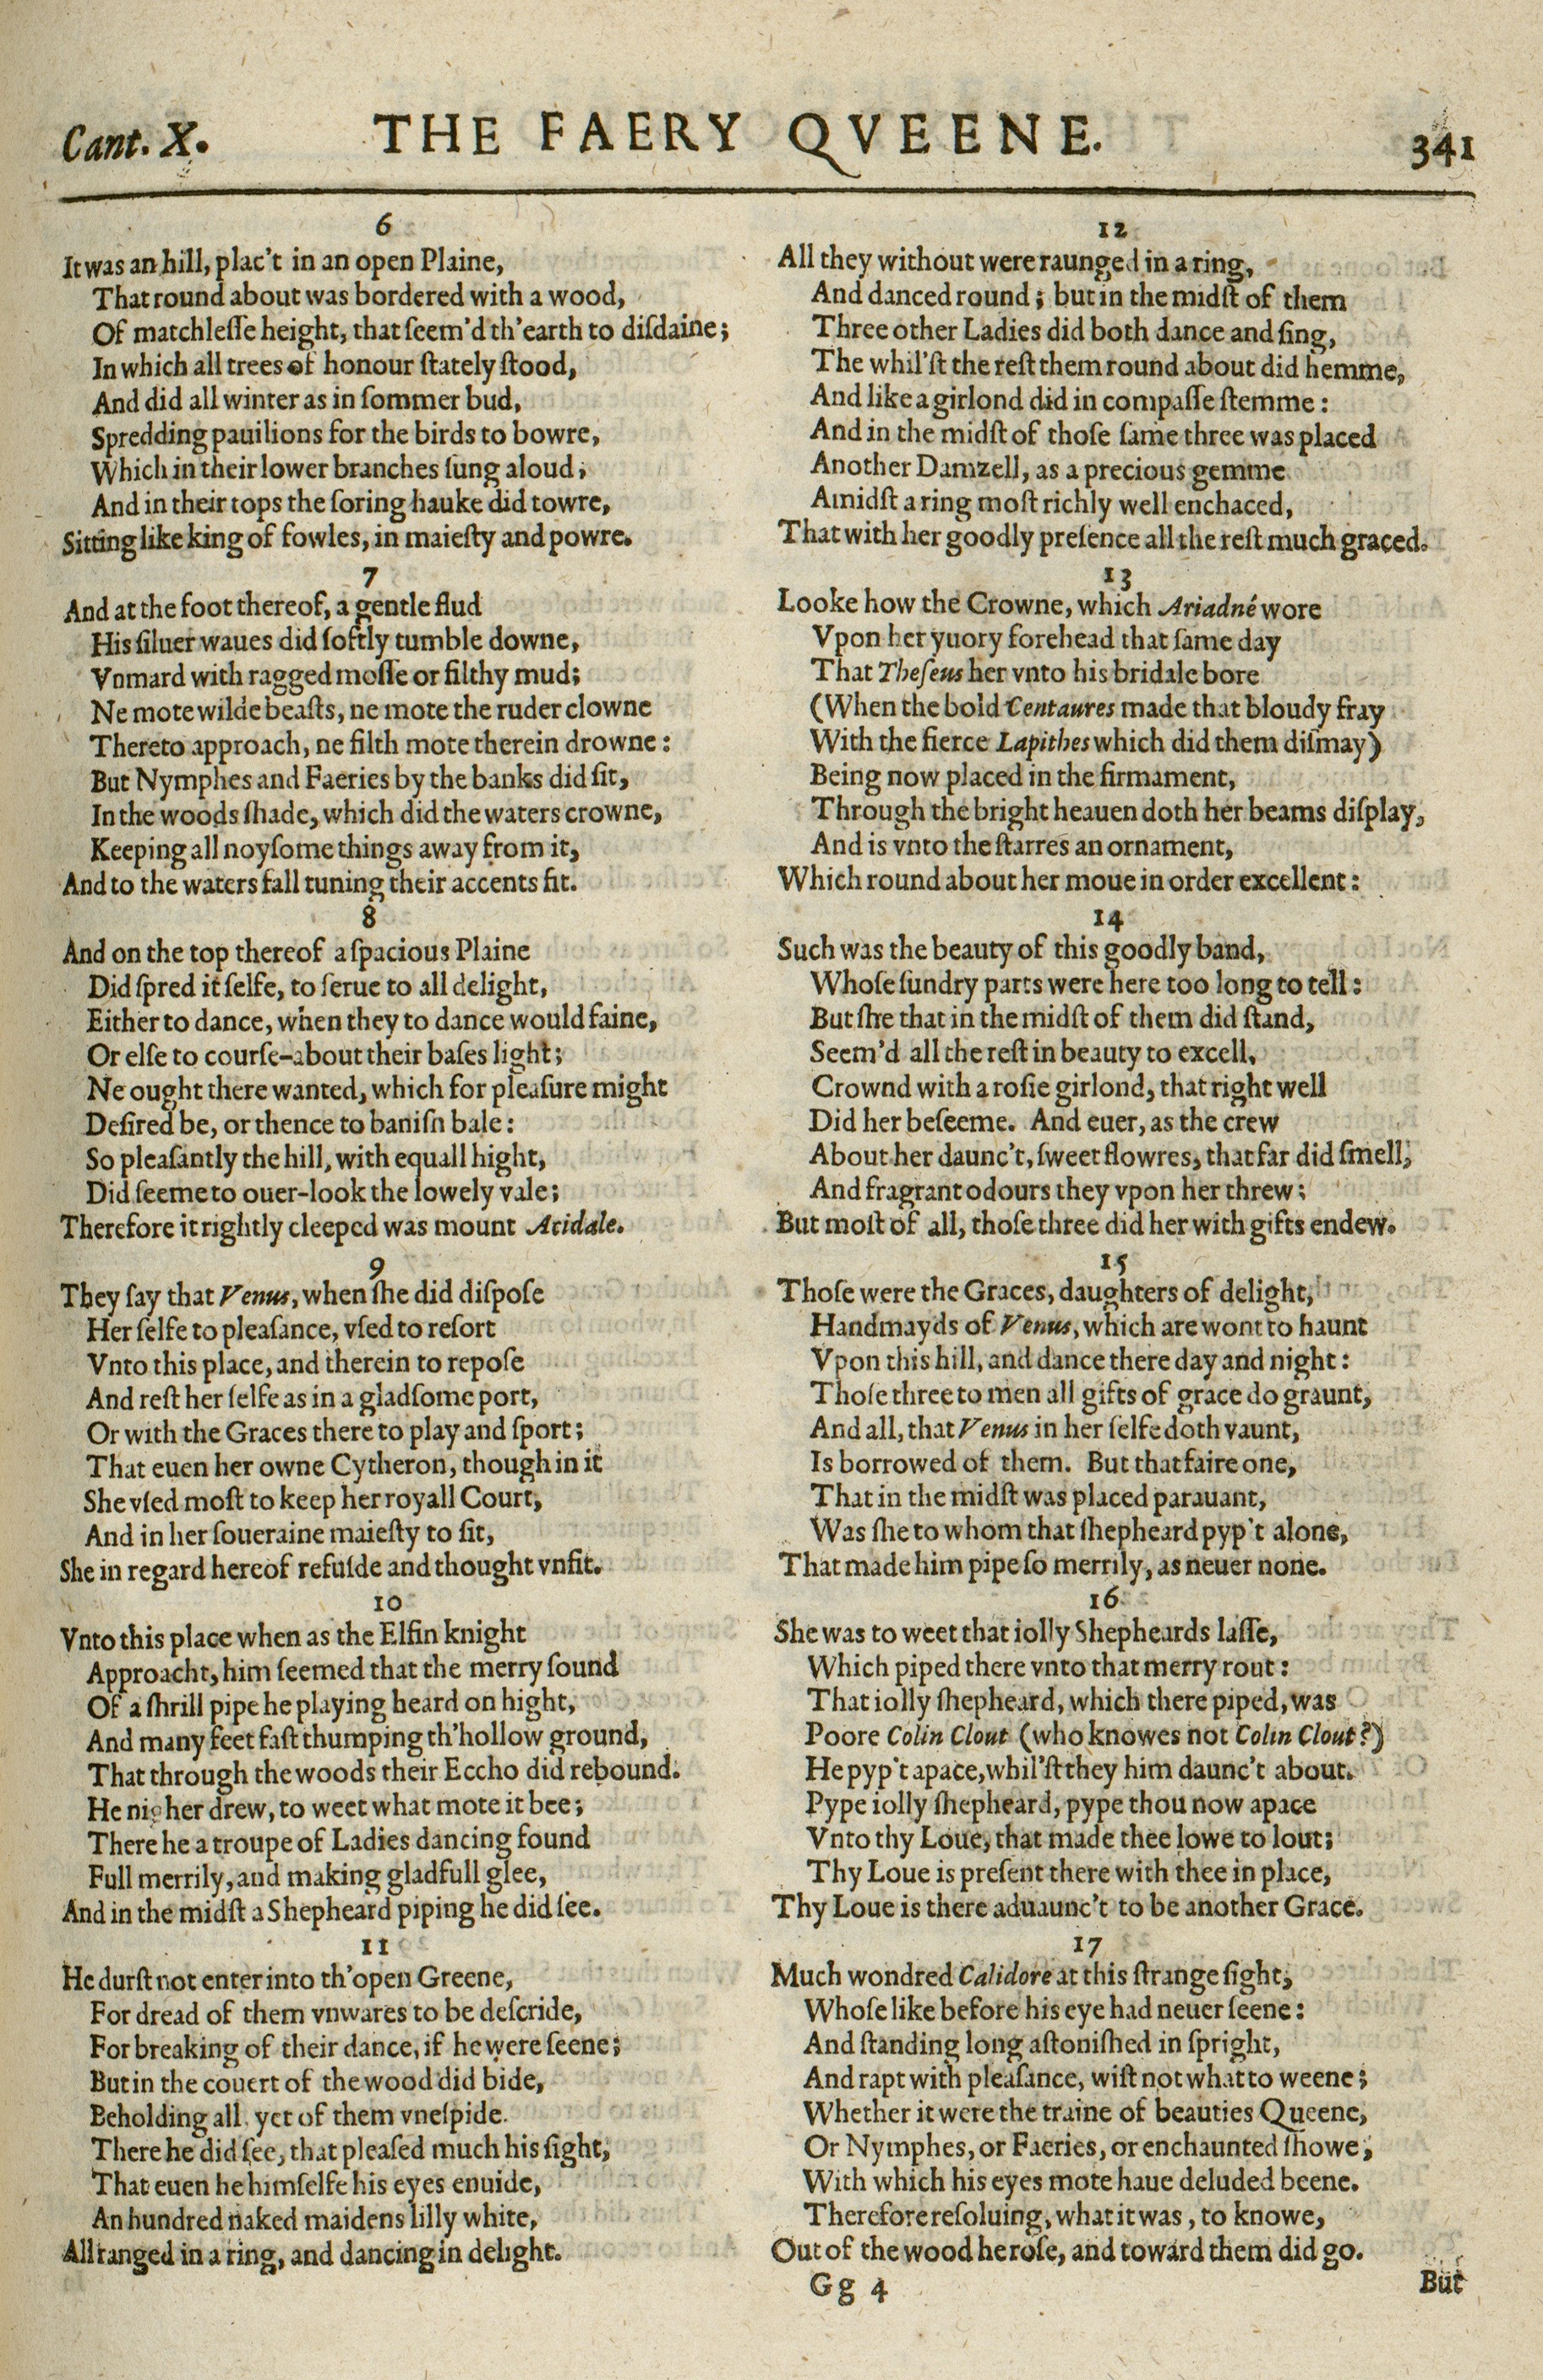 Cant. X.
THE FAERY QVEENE.
341
6
It was an hill, plac't in an open Plaine,
That round about was bordered with a wood,
Of matchleſſe height, that ſeem'd th'earth to diſdaine;
In which all trees of honour ſtately ſtood,
And did all winter as in ſommer bud,
Spredding pauilions for the birds to bowre,
Which in their lower branches ſung aloud;
And in their tops the ſoring hauke did towre,
Sitting like king of fowles, in maieſty and powre.
7
And at the foot thereof, a gentle flud
His ſiluer waues did ſoftly tumble downe,
Vnmard with ragged moſſe or filthy mud;
Ne mote wilde beaſts, ne mote the ruder clowne
Thereto approach, ne filth mote therein drowne:
But Nymphes and Faeries by the banks did ſit,
In the woods ſhade, which did the waters crowne,
Keeping all noyſome things away from it,
And to the waters fall tuning their accents fit.
8
And on the top thereof a ſpacious Plaine
Did ſpred it ſelfe, to ſerue to all delight,
Either to dance, when they to dance would faine,
Or elſe to courſe-about their baſes light;
Ne ought there wanted, which for pleaſure might
Deſired be, or thence to baniſh bale:
So pleaſantly the hill, with equall hight,
Did ſeeme to ouer-look the lowely vale;
Therefore it rightly cleeped was mount Acidale.
9
They ſay that Venus, when ſhe did diſpoſe
Her ſelfe to pleaſance, vſed to reſort
Vnto this place, and therein to repoſe
And reſt her ſelfe as in a gladſome port,
Or with the Graces there to play and ſport;
That euen her owne Cytheron, though in it
She vſed moſt to keep her royall Court,
And in her ſoueraine maieſty to ſit,
She in regard hereof refuſde and thought vnfit.
10
Vnto this place when as the Elfin knight
Approacht, him ſeemed that the merry ſound
Of a ſhrill pipe he playing heard on hight,
And many feet faſt thumping th'hollow ground,
That through the woods their Eccho did rebound.
He nigher drew, to weet what mote it bee;
There he a troupe of Ladies dancing found
Full merrily, and making gladfull glee,
And in the midſt a Shepheard piping he did ſee.
11
He durſt not enter into th'open Greene,
For dread of them vnwares to be deſcride,
For breaking of their dance, if he were ſeene;
But in the couert of the wood did bide,
Beholding all, yet of them vneſpide.
There he did ſee, that pleaſed much his ſight,
That euen he himſelfe his eyes enuide,
An hundred naked maidens lilly white,
All ranged in a ring, and dancing in delight.
12
All they without were raunged in a ring,
And danced round; but in the midſt of them
Three other Ladies did both dance and ſing,
The whil'ſt the reſt them round about did hemme,
And like a girlond did in compaſſe ſtemme:
And in the midſt of thoſe ſame three was placed
Another Damzell, as a precious gemme
Amidſt a ring moſt richly well enchaced,
That with her goodly preſence all the reſt much graced.
13
Looke how the Crowne, which Ariadné wore
Vpon her yuory forehead that ſame day
That Theſeus her vnto his bridale bore
(When the bold Centaures made that bloudy fray
With the fierce Lapithes which did them diſmay)
Being now placed in the firmament,
Through the bright heauen doth her beams diſplay,
And is vnto the ſtarres an ornament,
Which round about her moue in order excellent:
14
Such was the beauty of this goodly band,
Whoſe ſundry parts were here too long to tell:
But ſhe that in the midſt of them did ſtand,
Seem'd all the reſt in beauty to excell,
Crownd with a roſie girlond, that right well
Did her beſeeme. And euer, as the crew
About her daunc't, ſweet flowres, that far did ſmell,
And fragrant odours they vpon her threw;
But moſt of all, thoſe three did her with gifts endew.
15
Thoſe were the Graces, daughters of delight,
Handmayds of Venus, which are wont to haunt
Vpon this hill, and dance there day and night:
Thoſe three to men all gifts of grace do graunt,
And all, that Venus in her ſelfe doth vaunt,
Is borrowed of them. But that faire one,
That in the midſt was placed parauant,
Was ſhe to whom that ſhepheard pyp't alone,
That made him pipe ſo merrily, as neuer none.
16
She was to weet that iolly Shepheards laſſe,
Which piped there vnto that merry rout:
That iolly ſhepheard, which there piped, was
Poore Colin Clout (who knowes not Colin Clout?)
He pyp't apace, whil'ſt they him daunc't about.
Pype iolly ſhepheard, pype thou now apace
Vnto thy Loue, that made thee lowe to lout;
Thy Loue is preſent there with thee in place,
Thy Loue is there aduaunc't to be another Grace.
17
Much wondred Calidore at this ſtrange ſight,
Whoſe like before his eye had neuer ſeene:
And ſtanding long aſtoniſhed in ſpright,
And rapt with pleaſance, wiſt not what to weene;
Whether it were the traine of beauties Queene,
Or Nymphes, or Faeries, or enchaunted ſhowe,
With which his eyes mote haue deluded beene.
Therefore reſoluing, what it was, to knowe,
Out of the wood he roſe, and toward them did go.
Gg 4
But